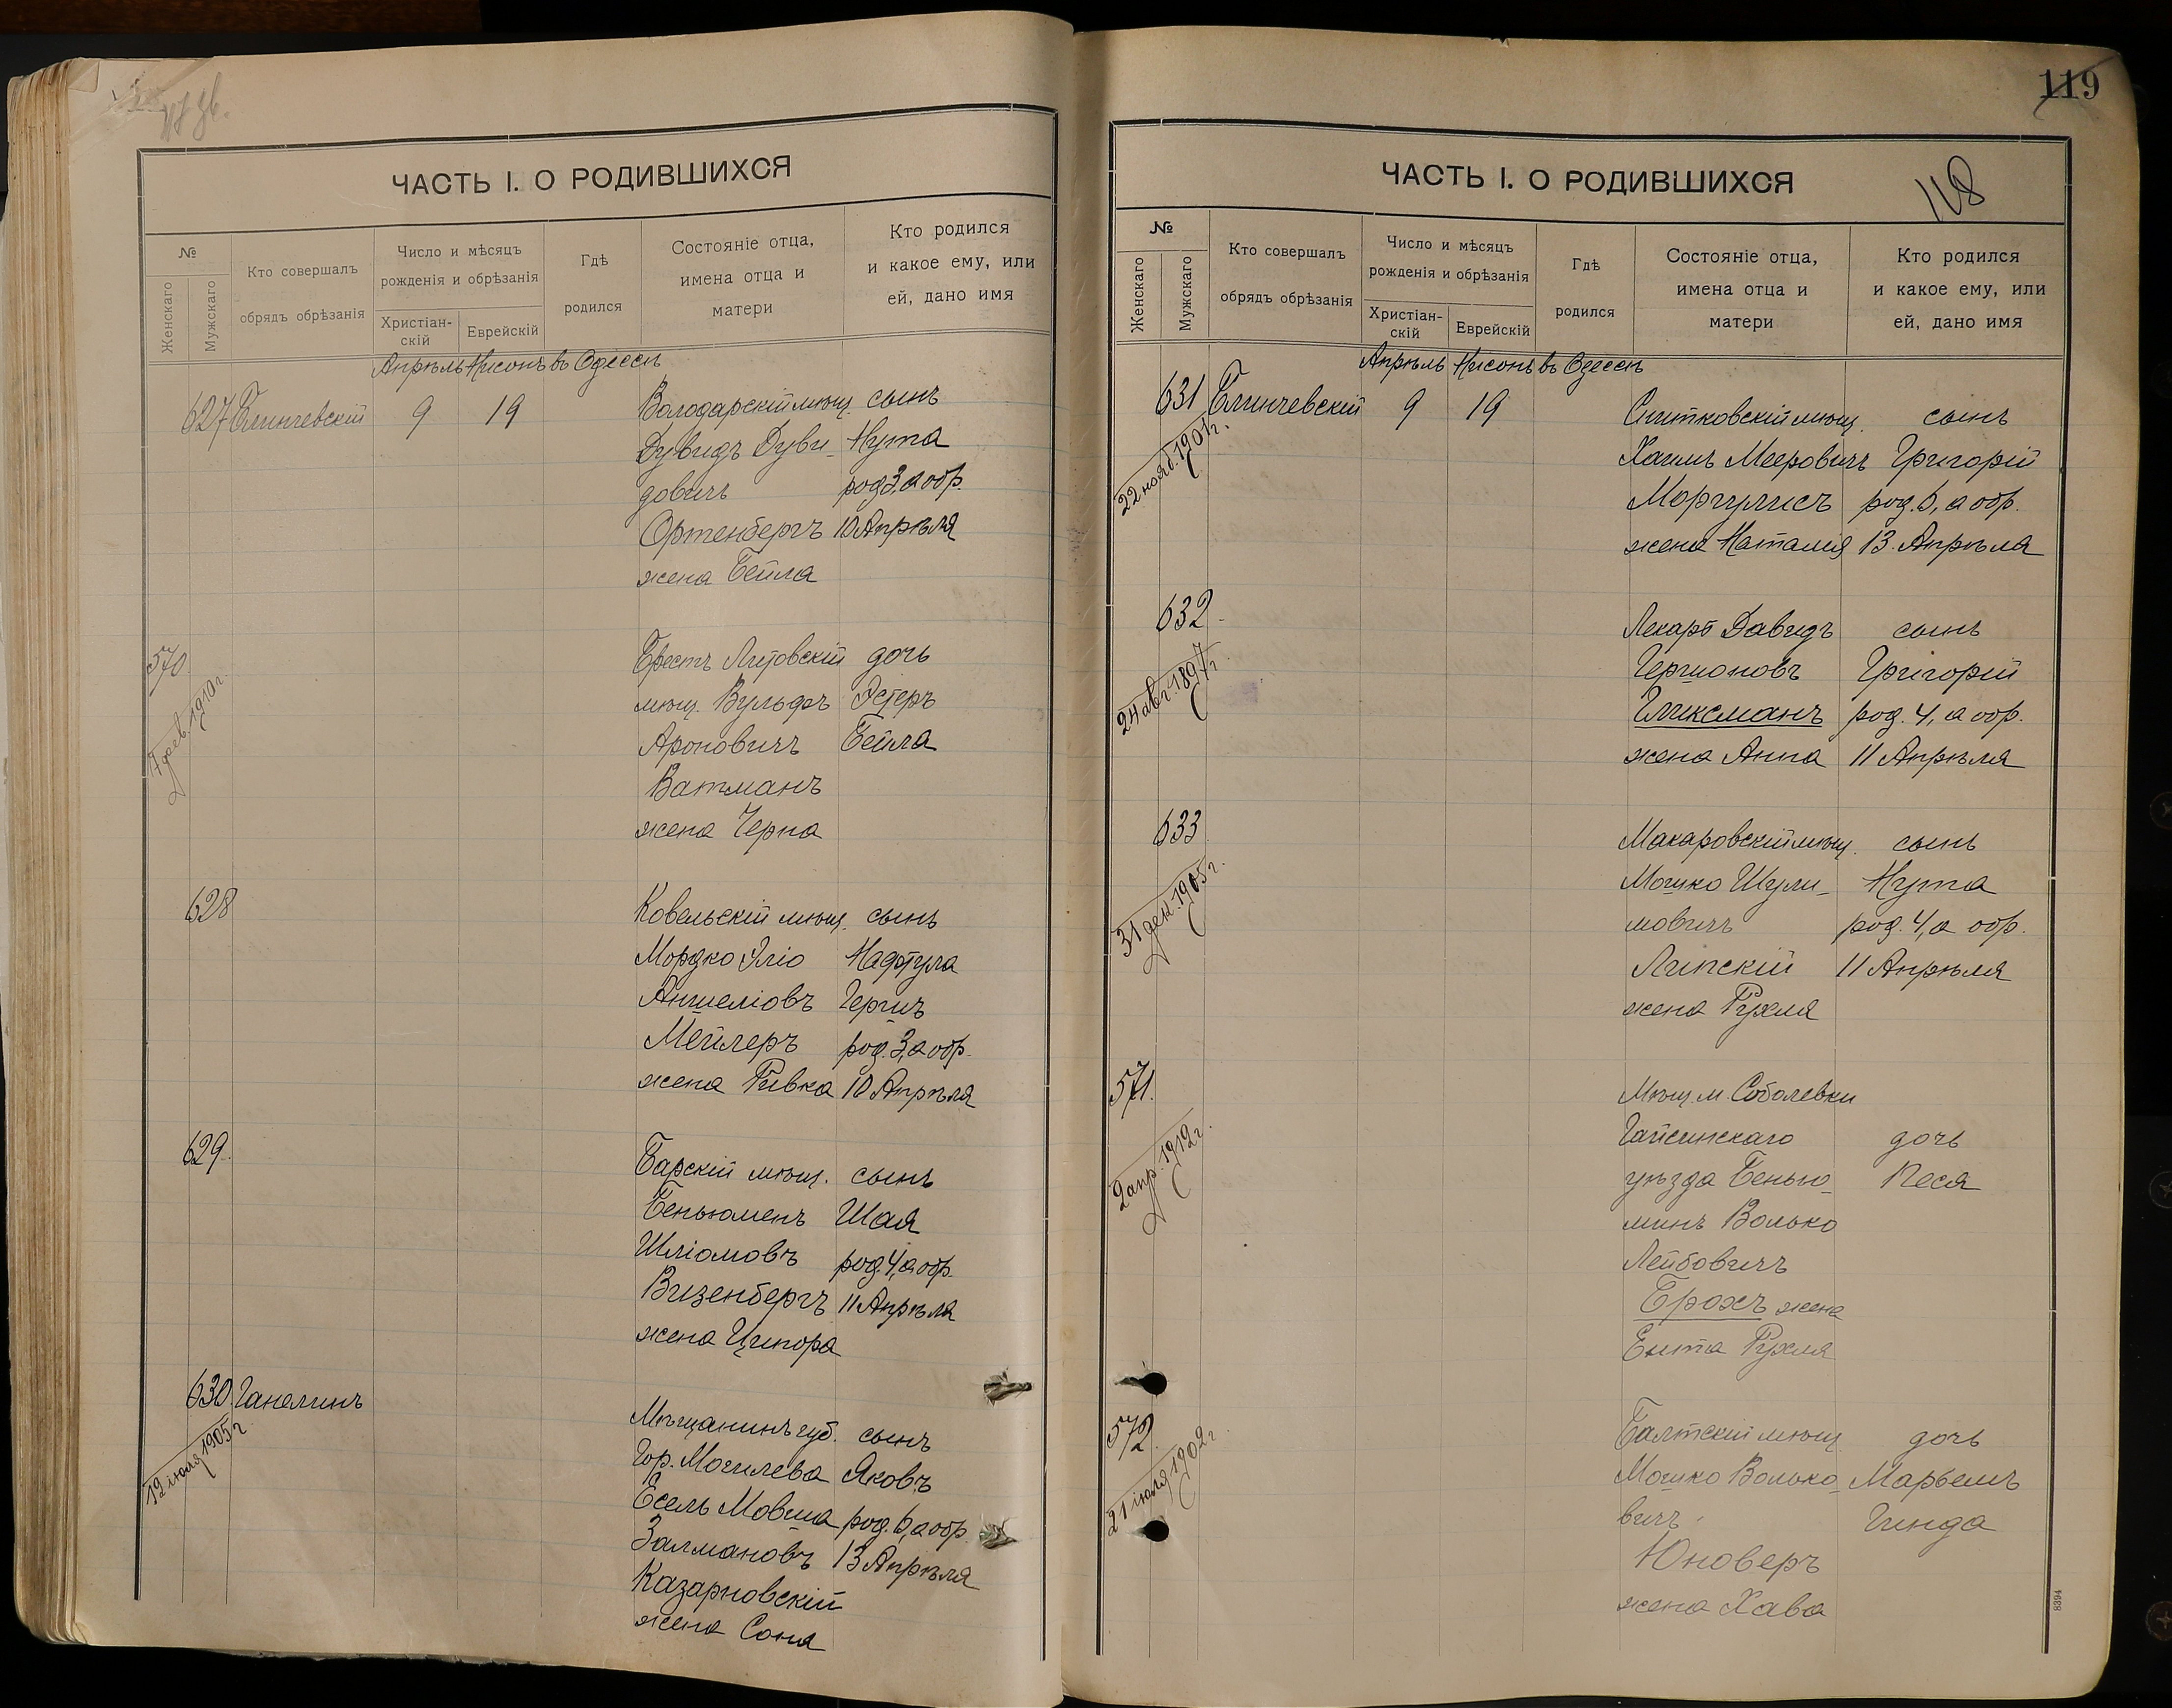 ЧАСТЬ I. О РОДИВШИХСЯ
№
Женскаго
Мужскаго
Кто совершалъ
обрядъ обрѣзанія
Число и мѣсяцъ
рожденія и обрѣзанія
Христіан-
скій
Еврейскій
Гдѣ
родился
Состояніе отца,
имена отца и
матери
Кто родился
и какое ему, или
ей, дано имя
Апрѣль Нисонъ въ Одессѣ
627 Блинчевскій 9 19 Володарскій мѣщ. сынъ
Дувидъ Дуви- Нута
довичъ род. 3, а обр.
Ортенбергъ 10 Апрѣля
жена Бейла
570 Брестъ Литовскій дочь
7 фев. 1910 г.
мѣщ. Вульфъ Эстеръ
Ароновичъ Бейла
Ватманъ
жена Черна
628 Ковельскій мѣщ. сынъ
Мордко Эліо Нафтула
Аншеліовъ Гершъ
Мейлеръ род. 3, а обр.
жена Ривка 10 Апрѣля
629 Барскій мѣщ. сынъ
Беньюменъ Шая
Шліомовъ род. 4, а обр.
Визенбергъ 11 Апрѣля
жена Ципора
630 Ганелинъ Мѣщанинъ губ. сынъ
12 іюля 1905 г.
Гор. Могилева Яковъ
Есель Мовша род. 6, а обр.
Залмановъ 13 Апрѣля
Казарновскій
жена Соня
119
118
ЧАСТЬ I. О РОДИВШИХСЯ
№
Женскаго
Мужскаго
Кто совершалъ
обрядъ обрѣзанія
Число и мѣсяцъ
рожденія и обрѣзанія
Христіан-
скій
Еврейскій
Гдѣ
родился
Состояніе отца,
имена отца и
матери
Кто родился
и какое ему, или
ей, дано имя
Апрѣль Нисонъ въ Одессѣ
631 Блинчевскій 9 19 Снитковскій мѣщ. сынъ
22 нояб. 1901 г.
Хаимъ Мееровичъ Григорій
Моргулисъ род. 6, а обр.
жена Наталія 13 Апрѣля
632 Лекарь Давидъ сынъ
24 авг. 1897 г.
Гершоновъ Григорій
Гликсманъ род. 4, а обр.
жена Анна 11 Апрѣля
633 Макаровскій мѣщ. сынъ
31 дек. 1905 г.
Мошко Шули- Нута
мовичъ род. 4, а обр.
Липскій 11 Апрѣля
жена Рухля
571. Мѣщ. м. Соболевки
2 апр. 1912 г.
Гайсинскаго дочь
уѣзда Бенью- Песя
минъ Волько
Лейбовичъ
Брохъ жена
Ента Рухля
572. Балтскій мѣщ. дочь
21 іюля 1902 г.
Мошко Волько- Марьемъ
вичъ Гинда
Юноверъ
жена Хава
8394